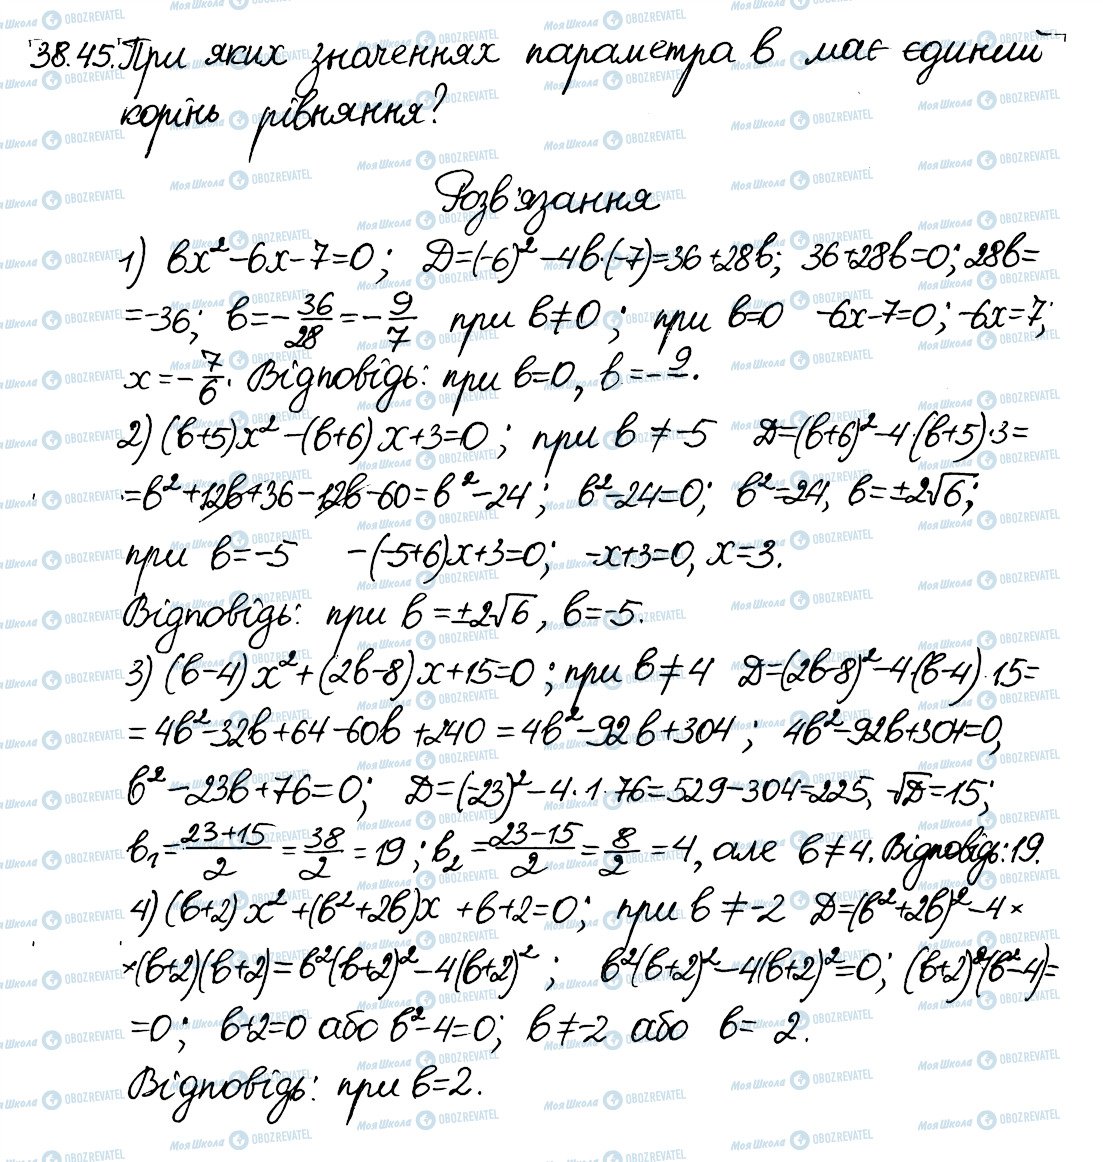 38.45. При яких значеннях параметра в має єдиний
корінь рівняння?
Розв'язання
1) вx²-6x-7=0; Д=(-6)²-4в·(-7)=36+28в; 36+28в=0; 28в=
=-36; в=-36/28=-9/7 при в≠0; при в=0 -6x-7=0; -6x=7;
x=-7/6. Відповідь: при в=0, в=-9.
2) (в+5)x²-(в+6)x+3=0; при в≠-5 Д=(в+6)²-4·(в+5)·3=
=в²+12в+36-12в-60=в²-24; в²-24=0; в²=24, в=±2√6;
при в=-5 -(-5+6)x+3=0; -x+3=0, x=3.
Відповідь: при в=±2√6, в=-5.
3) (в-4)x²+(2в-8)x+15=0; при в≠4 Д=(2в-8)²-4·(в-4)·15=
=4в²-32в+64-60в+240=4в²-92в+304; 4в²-92в+304=0,
в²-23в+76=0; Д=(-23)²-4·1·76=529-304=225, √Д=15;
в₁=23+15/2=38/2=19; в₂=23-15/2=8/2=4, але в≠4. Відповідь: 19.
4) (в+2)x²+(в²+2в)x+в+2=0; при в≠-2 Д=(в²+2в)²-4×
×(в+2)(в+2)=в²(в+2)²-4(в+2)²; в²(в+2)²-4(в+2)²=0; (в+2)²(в²-4)=
=0; в+2=0 або в²-4=0; в≠-2 або в= 2.
Відповідь: при в=2.